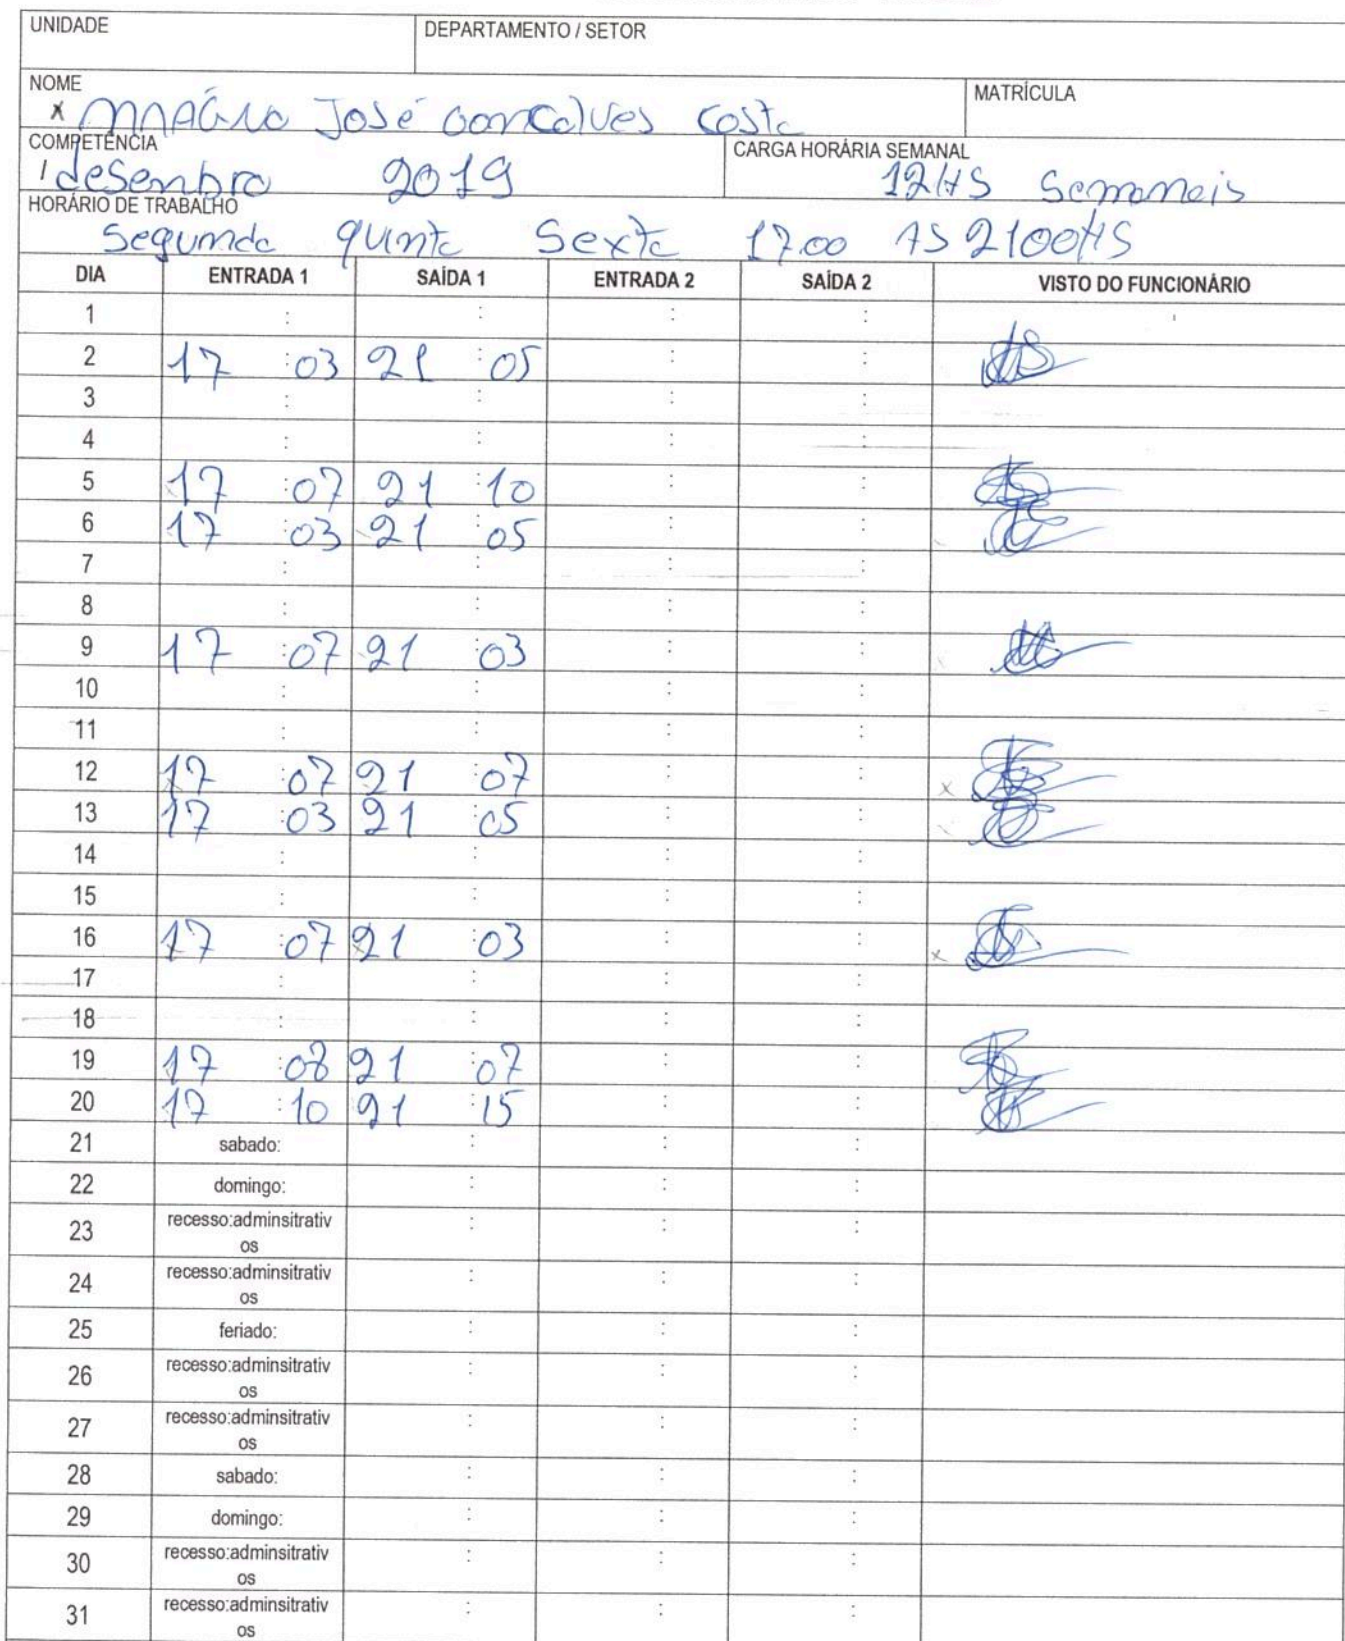 UNIDADE DEPARTAMENTO / SETOR
NOME MATRÍCULA
x José Goncalves Costa
COMPETÊNCIA CARGA HORÁRIA SEMANAL
desembro 2019 12HS Semaneis
HORÁRIO DE TRABALHO
Segunda quinta Sexta 17.00 AS 2100HS
DIA ENTRADA 1 SAÍDA 1 ENTRADA 2 SAÍDA 2 VISTO DO FUNCIONÁRIO
1 : : : :
2 17 :03 21 :05 : :
3 : : : :
4 : : : :
5 17 :07 21 :10 : :
6 17 :03 21 :05 : :
7 : : : :
8 : : : :
9 17 :07 21 :03 : :
10 : : : :
11 : : : :
12 17 :07 21 :07 : : x
13 17 :03 21 :05 : :
14 : : : :
15 : : : :
16 17 :07 21 :03 : : x
17 : : : :
18 : : : :
19 17 :08 21 :07 : :
20 17 :10 21 :15 : :
21 sabado: : : :
22 domingo: : : :
23 recesso:adminsitrativ : : :
os
24 recesso:adminsitrativ : : :
os
25 feriado: : : :
26 recesso:adminsitrativ : : :
os
27 recesso:adminsitrativ : : :
os
28 sabado: : : :
29 domingo: : : :
30 recesso:adminsitrativ : : :
os
31 recesso:adminsitrativ : : :
os